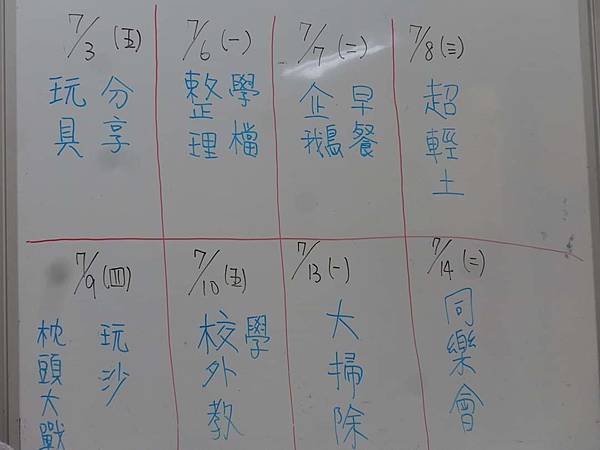 7/3(五)
玩具
分享
7/6(一)
整理
學檔
7/7(二)
企鵝
早餐
7/8(三)
超輕土
7/9(四)
枕頭大戰
玩沙
7/10(五)
校外教
學
7/13(一)
大掃除
7/14(二)
同樂會